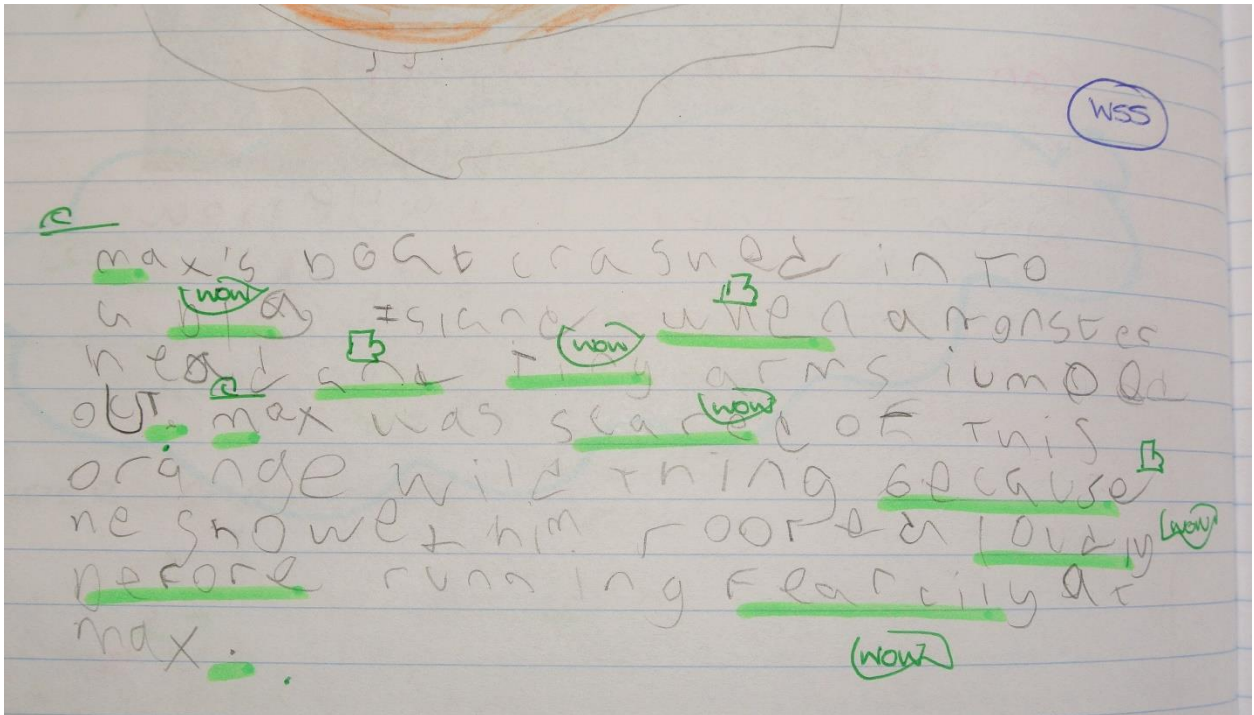 WSS
max's boat crashed in To
wow
a big Island when a monster
wow
head and Tiny arms jumped
wow
out. max was scared of This
orange wild Thing because
he showet him roored loudly wow
before running fearcily at
max.
wow